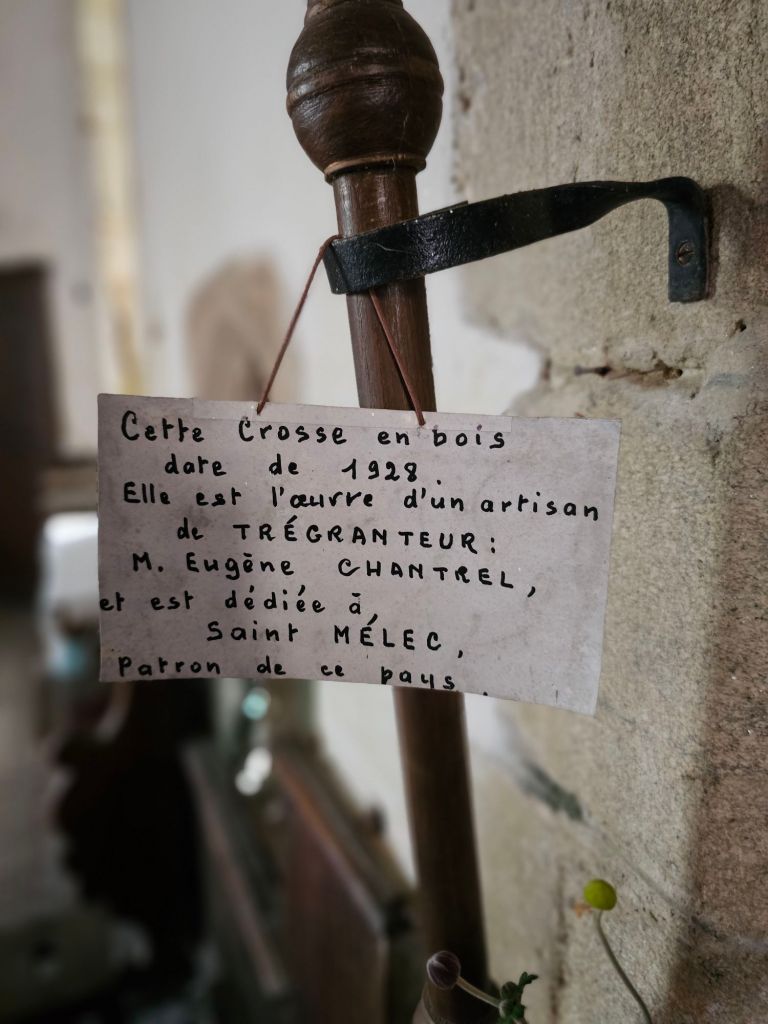 Cette Crosse en bois
date de 1928.
Elle est l'œuvre d'un artisan
de TRÉGRANTEUR:
M. Eugène CHANTREL,
et est dédiée à
Saint MÉLEC,
Patron de ce pays.